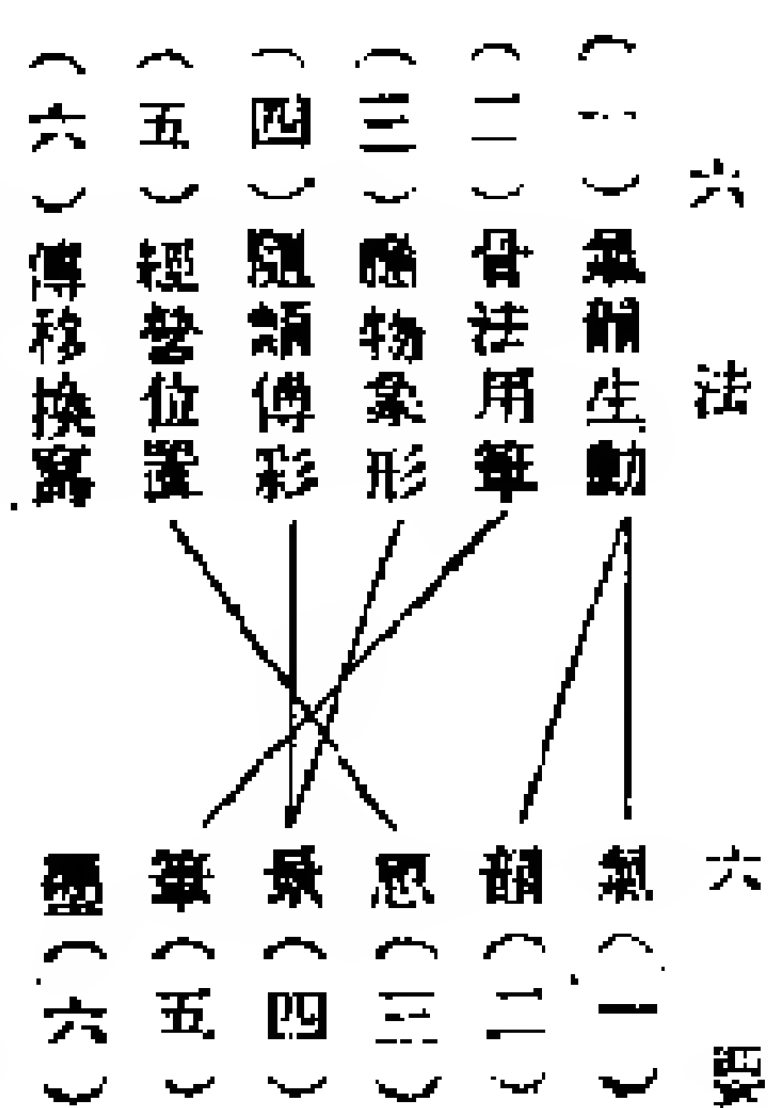 六法
(一)氣韻生動
(二)骨法用筆
(三)應物象形
(四)隨類傅彩
(五)經營位置
(六)傳移摸寫
六要
氣(一)
韻(二)
思(三)
景(四)
筆(五)
墨(六)